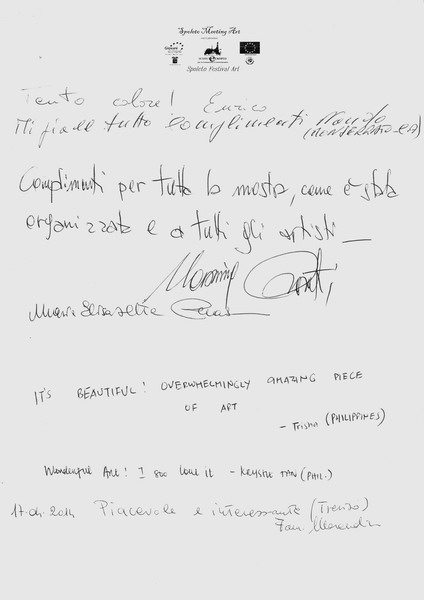 Spoleto Meeting Art
Spoleto Festival Art
Tanto colore! Enrico
Mi piace tutto complimenti
Complimenti per tutta la mostra, come è stata
organizzata e a tutti gli artisti
Maria Elisabetta
IT'S BEAUTIFUL! OVERWHELMINGLY AMAZING PIECE
OF ART
- Trisha (PHILIPPINES)
Wonderful Art! I soo love it - KRYSTLE TAN (PHIL.)
17.04.2014 Piacevole e interessante (Trento)
Fam.